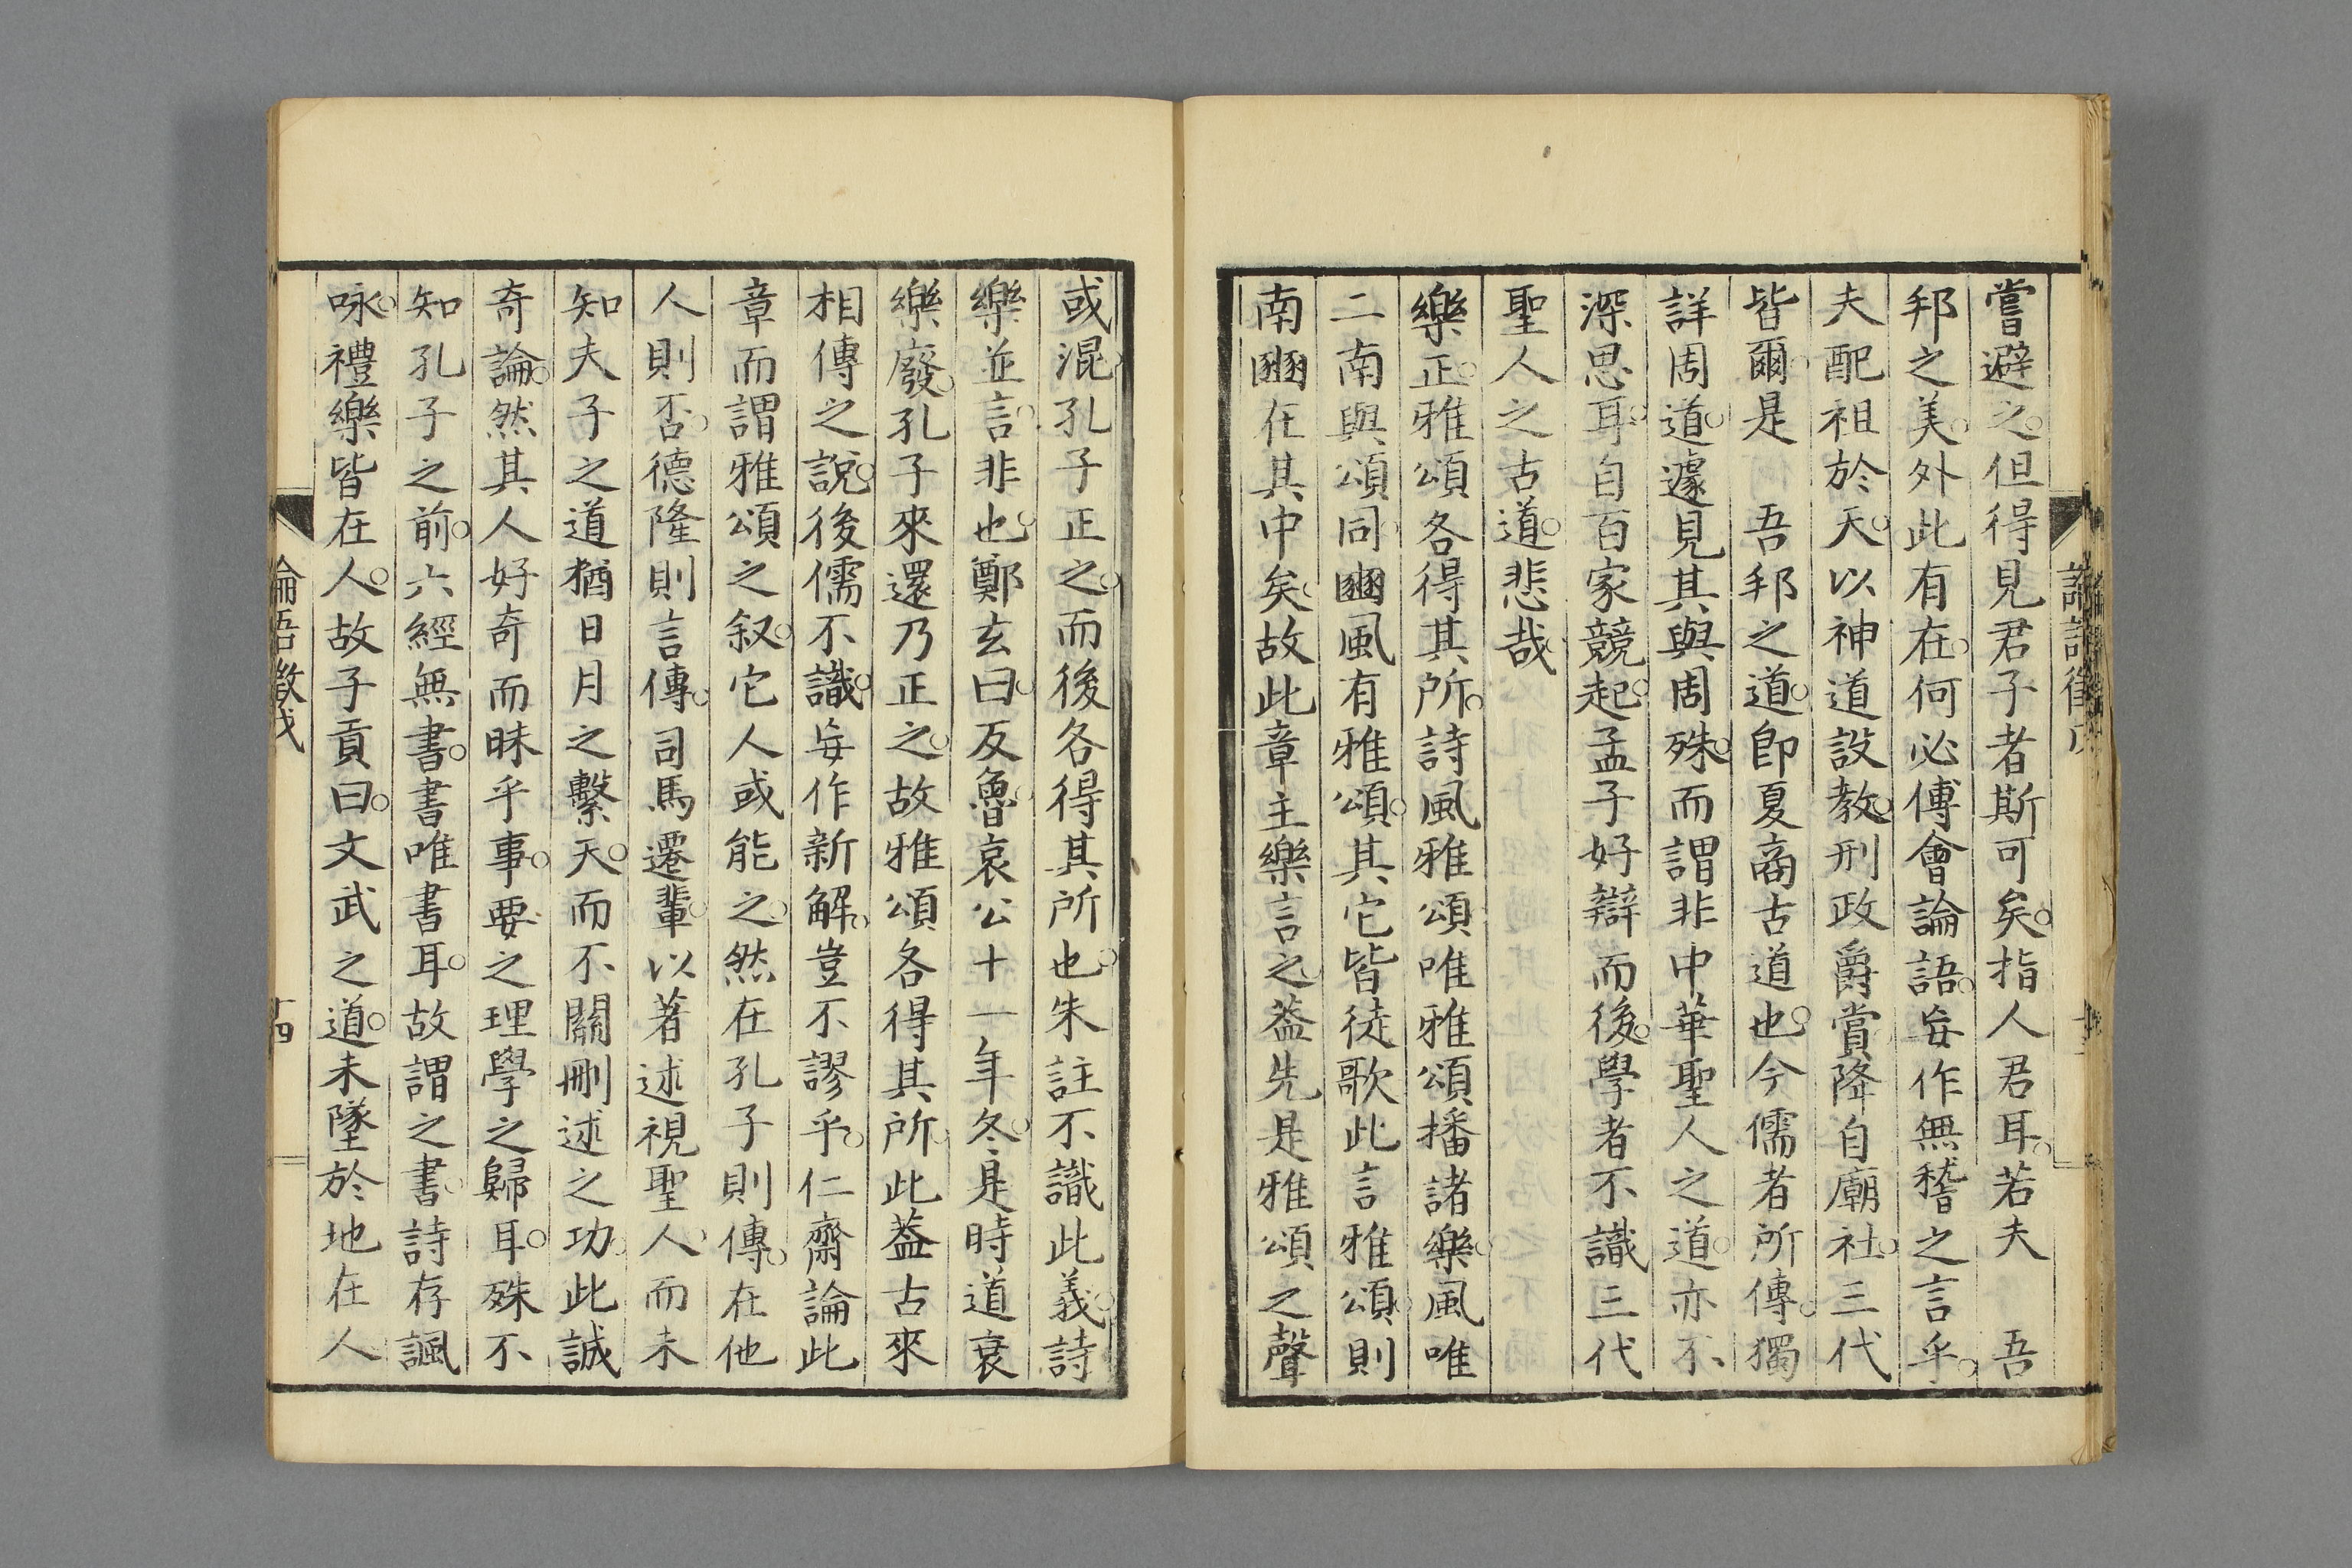 嘗避之。但得見君子者斯可矣。指人君耳。若夫　吾
邦之美。外此有在。何必傅會論語。妄作無稽之言乎。
夫配祖於天。以神道設教。刑政爵賞。降自廟社。三代
皆爾。是　吾邦之道。卽夏商古道也。今儒者所傳。獨
詳周道。遽見其與周殊。而謂非中華聖人之道。亦不
深思耳。自百家競起。孟子好辯而後。學者不識三代
聖人之古道。悲哉。
樂正。雅頌各得其所。詩風雅頌。唯雅頌播諸樂。風唯
二南與頌同。豳風有雅頌。其它皆徒歌。此言雅頌。則
南豳在其中矣。故此章主樂言之。葢先是雅頌之聲
或混。孔子正之。而後各得其所也。朱註不識此義。詩
樂並言。非也。鄭玄曰。反魯。哀公十一年冬。是時道衰
樂廢。孔子來還乃正之。故雅頌各得其所。此葢古來
相傳之說。後儒不識。妄作新解。豈不謬乎。仁齋論此
章而謂雅頌之叙。它人或能之。然在孔子則傳。在他
人則否。德隆則言傳。司馬遷輩。以著述視聖人。而未
知夫子之道猶日月之繫天。而不關刪述之功。此誠
奇論。然其人好奇而昧乎事。要之理學之歸耳。殊不
知孔子之前。六經無書。書唯書耳。故謂之書。詩存諷
咏。禮樂皆在人。故子貢曰。文武之道。未墜於地在人
論語徵戊
十四